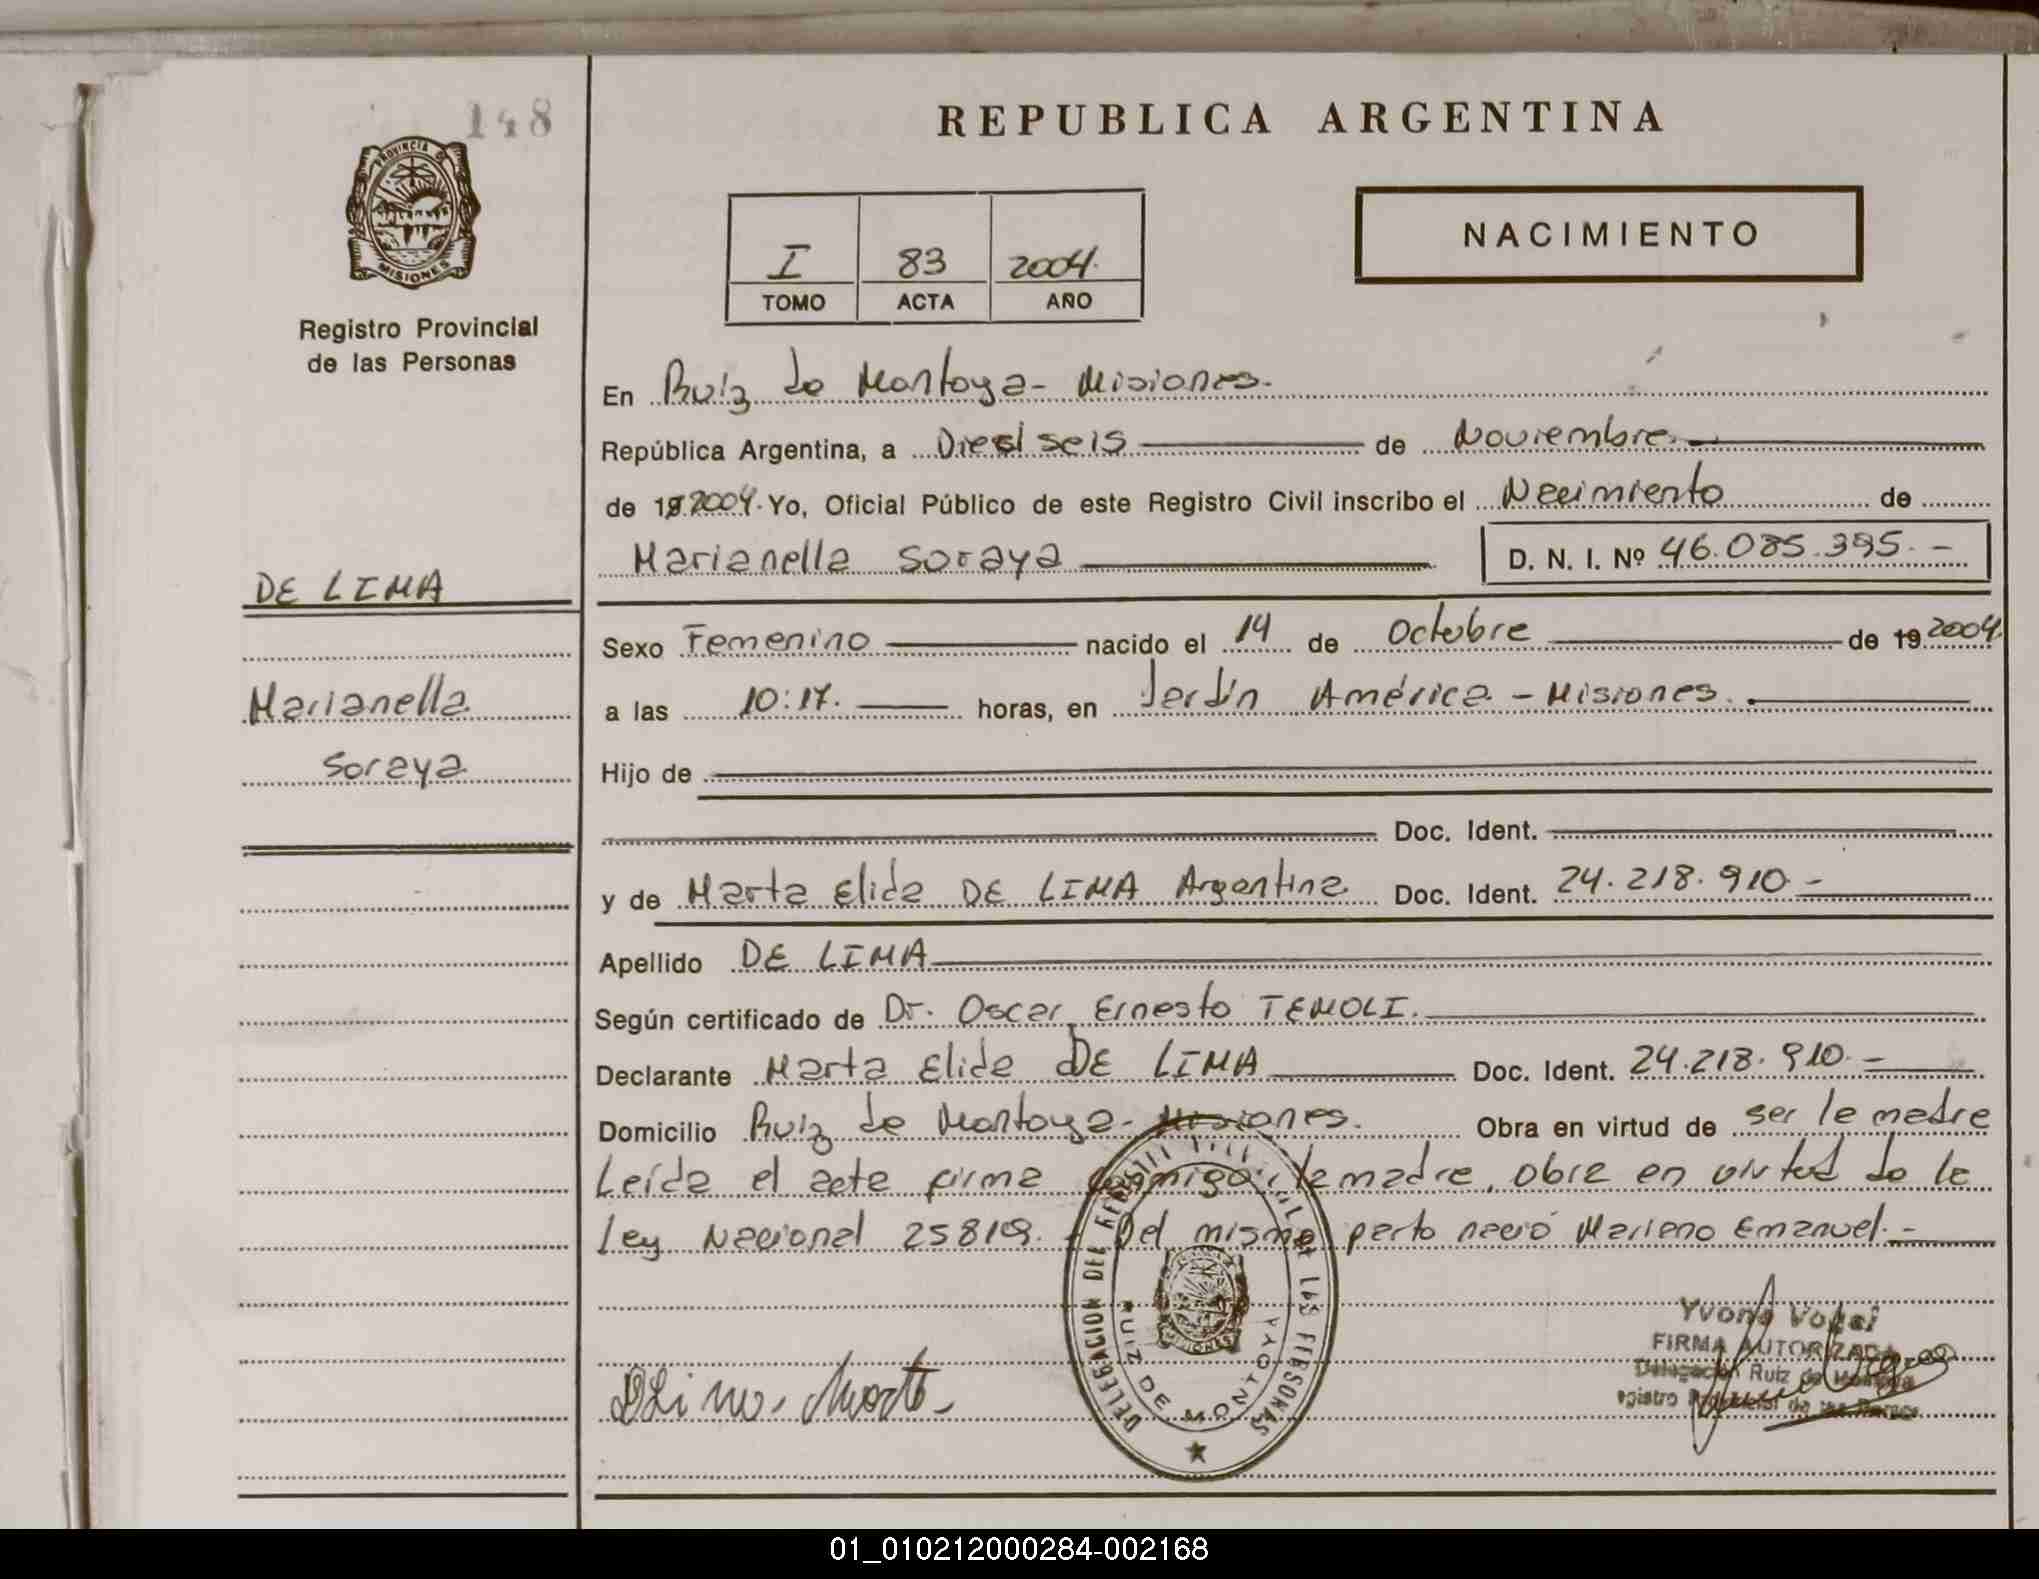 148
REPUBLICA ARGENTINA
PROVINCIA DE
MISIONES
I 83 2004.
TOMO ACTA AÑO
NACIMIENTO
Registro Provincial
de las Personas
En Ruiz de Montoya - Misiones.
República Argentina, a Dieciseis de Noviembre
de 19 2004. Yo, Oficial Público de este Registro Civil inscribo el Nacimiento de
Marianella Soraya D. N. I. Nº 46.085.395.-
DE LIMA
Marianella
Soraya
Sexo Femenino nacido el 14 de Octubre de 19 2004.
a las 10:17. horas, en Jardín América - Misiones.
Hijo de
Doc. Ident.
y de Marta Elida DE LIMA Argentina Doc. Ident. 24.218.910.-
Apellido DE LIMA
Según certificado de Dr. Oscar Ernesto TEMOLI.
Declarante Marta Elida DE LIMA Doc. Ident. 24.218.910.-
Domicilio Ruiz de Montoya - Misiones. Obra en virtud de ser la madre
Leída el acta firma conmigo la madre, obra en virtud de la
Ley Nacional 25819. - Del mismo parto nació Mariano Emanuel.-
DELEGACION DEL REGISTRO CIVIL DE LAS PERSONAS
RUIZ DE MONTOYA
MISIONES
Yvone
FIRMA AUTORIZADA
Delegación Ruiz de Montoya
egistro Provincial de las
01_010212000284-002168